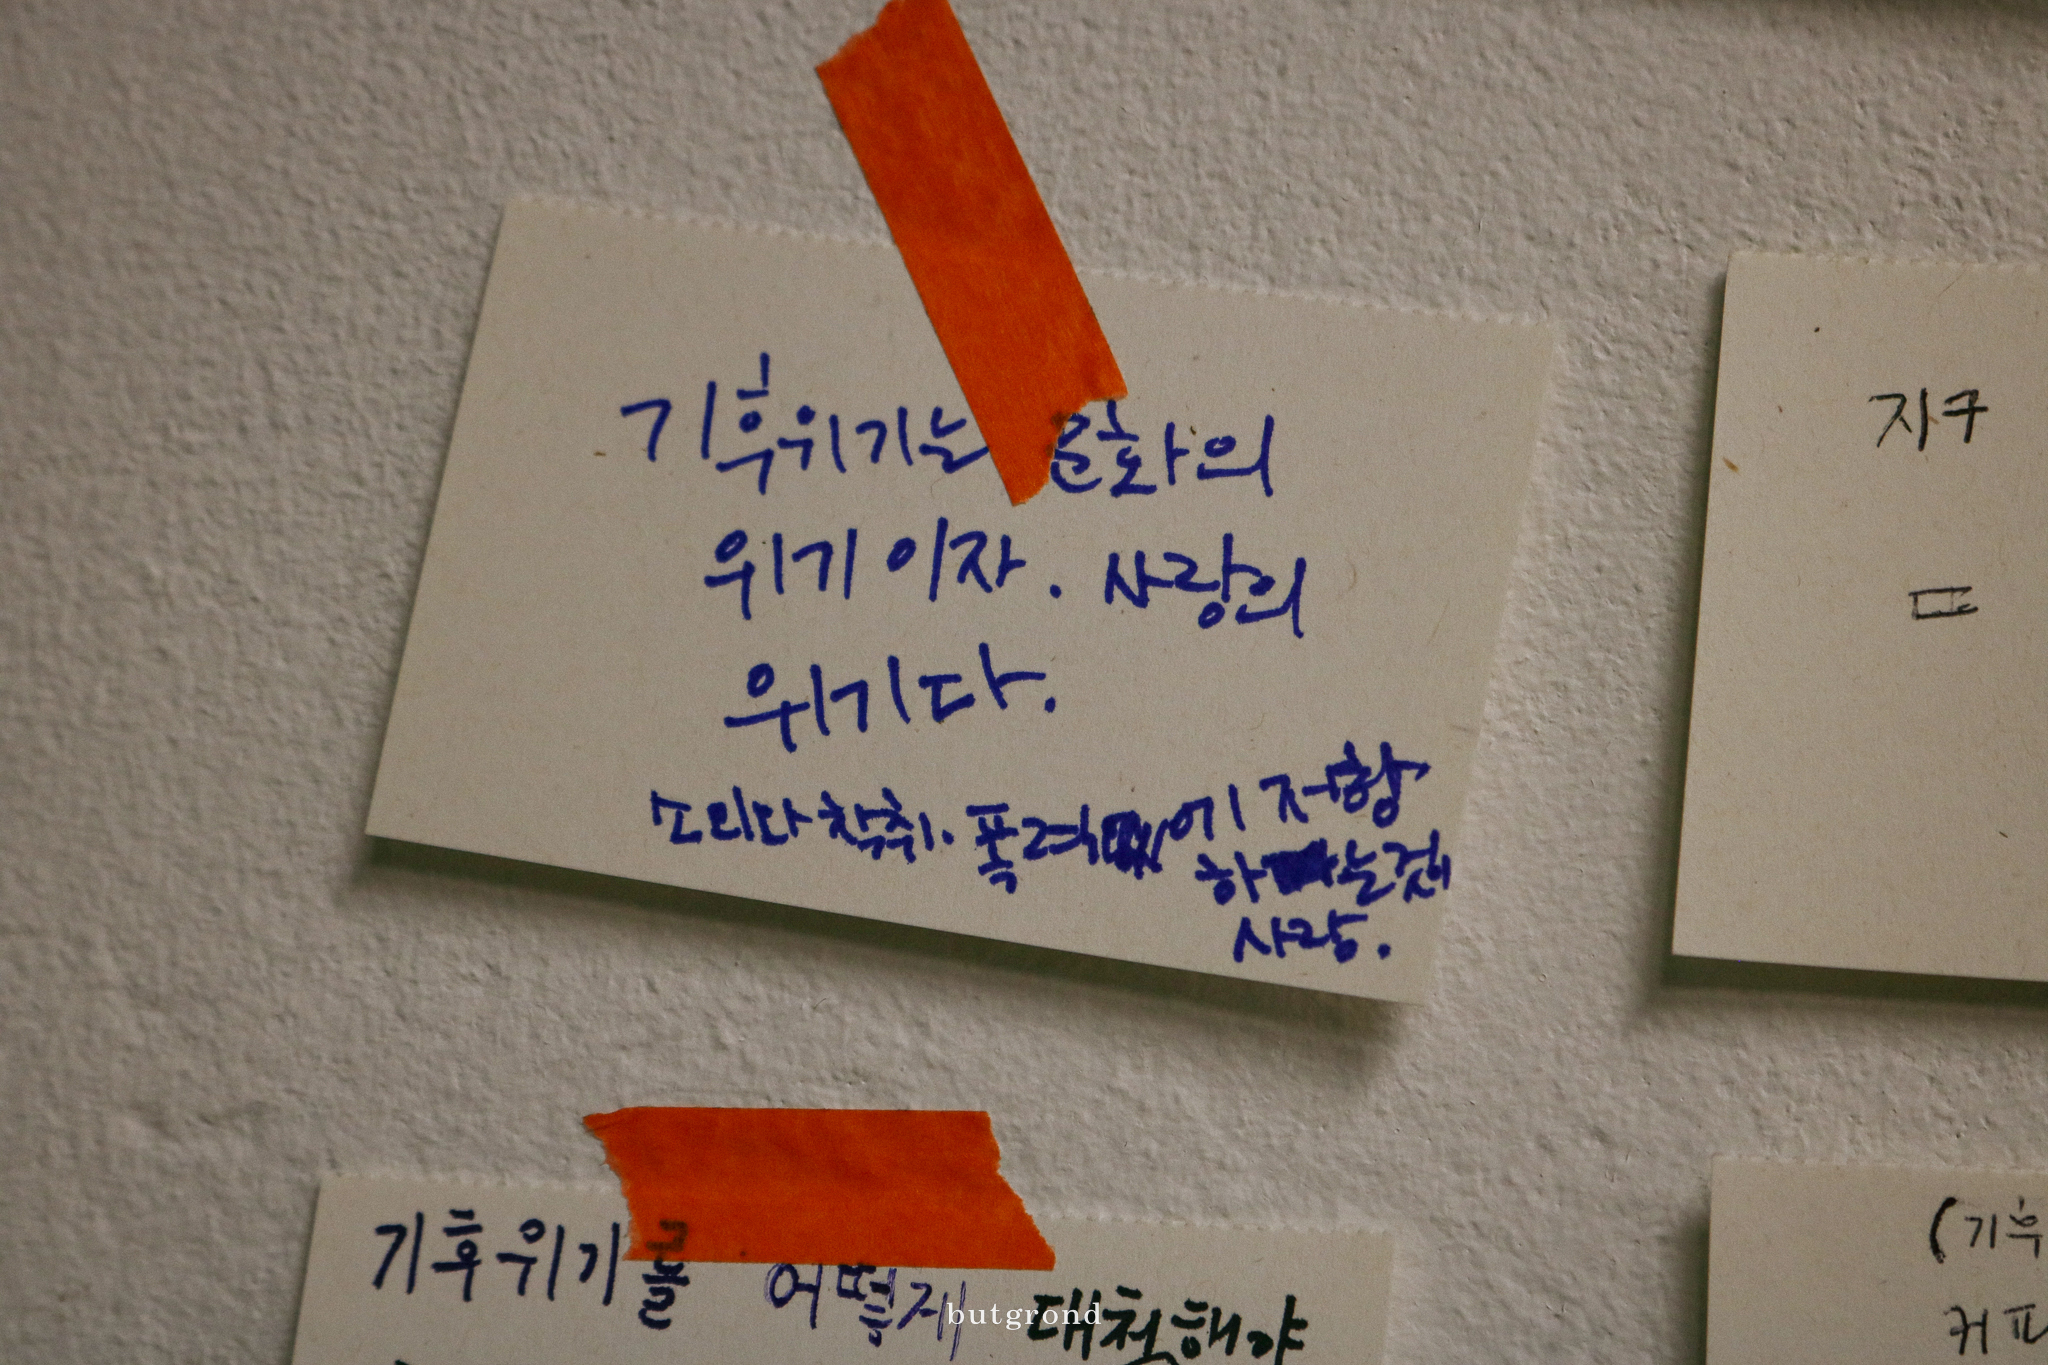 기후위기는 문화의
위기이자. 사랑의
위기다.
착취. 폭력에 저항
하는것이
사랑.
지구
=
기후위기를 어떻게 대처해야
(기후
커피
butgrond